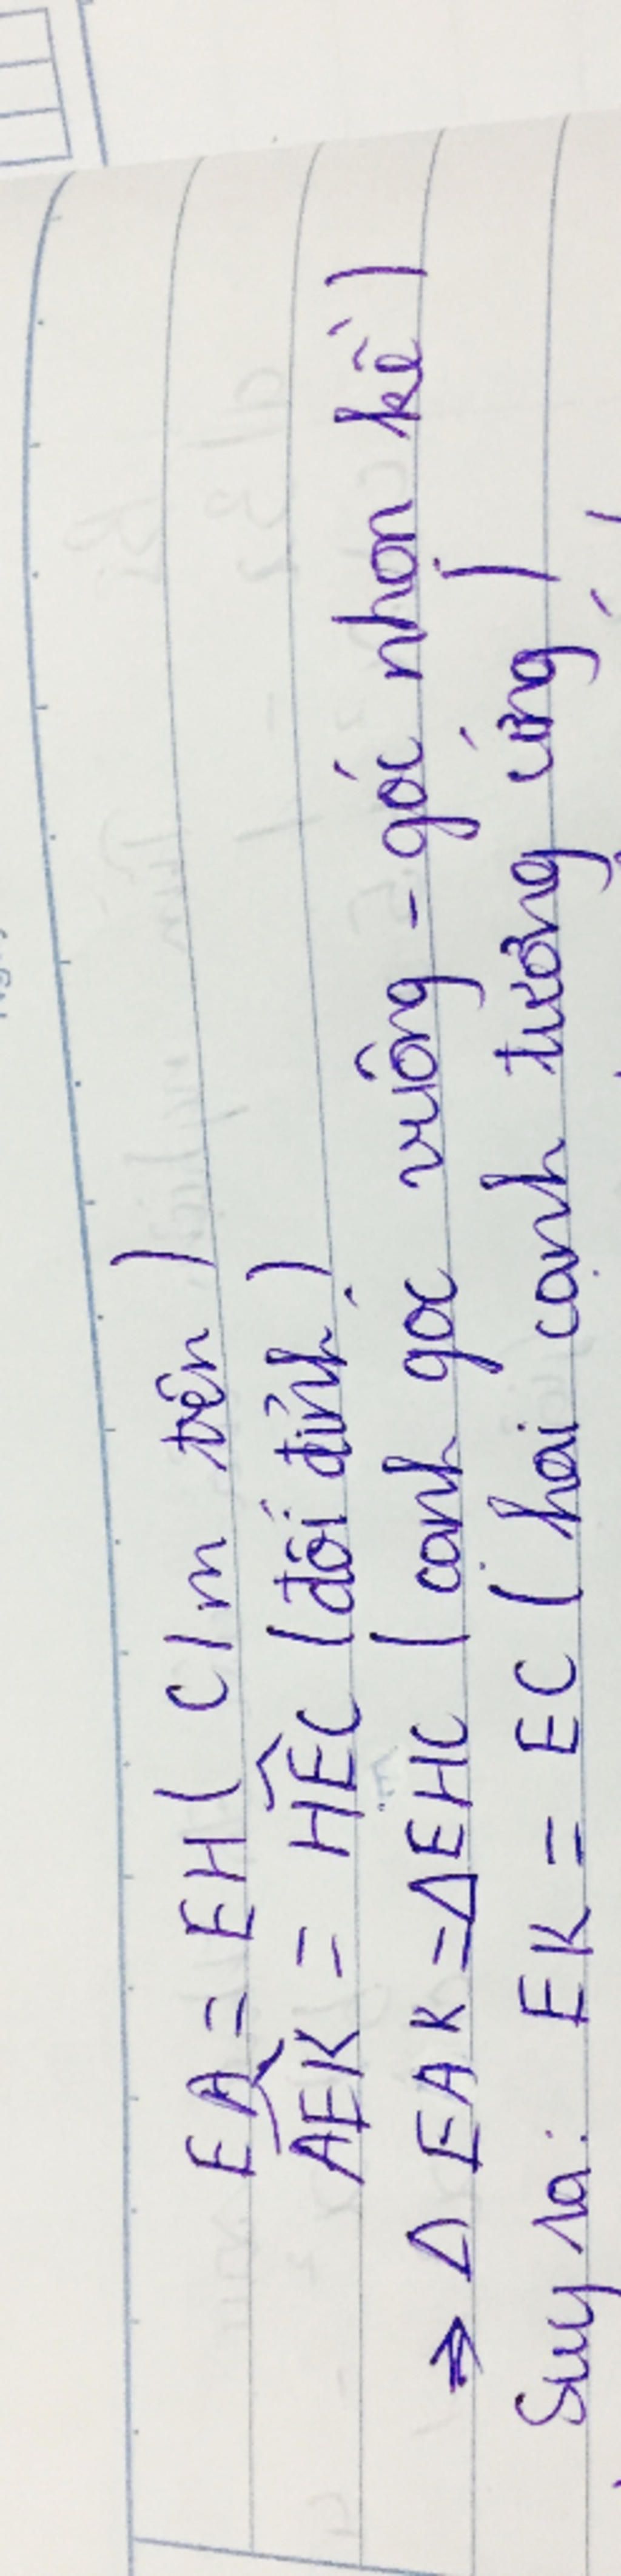 EA = EH ( C/m trên )
AEK^ = HEC^ ( đối đỉnh )
→ Δ EAK = ΔEHC ( cạnh góc vuông - góc nhọn kề )
Suy ra: EK = EC ( hai cạnh tương ứng )